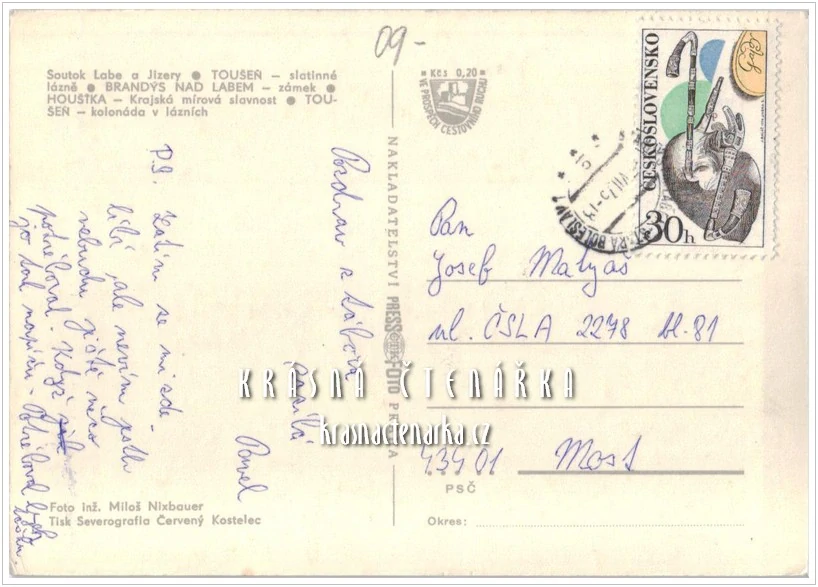 09-
Soutok Labe a Jizery ● TOUŠEŇ – slatinné
lázně ● BRANDÝS NAD LABEM – zámek ●
HOUŠTKA – Krajská mírová slavnost ● TOU-
ŠEŇ – kolonáda v lázních
Kčs 0,20
VE PROSPĚCH CESTOVNÍHO RUCHU
ČESKOSLOVENSKO
30h
STARÁ BOLESLAV
NAKLADATELSTVÍ PRESSFOTO PRAHA
Pozdrav z tábora
posílá
Pavel
P.S. Zatím se mi zde
líbí, ale nevím jestli
nebudu ještě něco
potřeboval. Když
jo tak napíšu. Potřeboval bych
Pan
Josef Matyas
ul. ČSLA 2278 bl. 81
43401 Most
PSČ
Okres:
KRÁSNÁ ČTENÁŘKA
krasnactenarka.cz
Foto inž. Miloš Nixbauer
Tisk Severografia Červený Kostelec